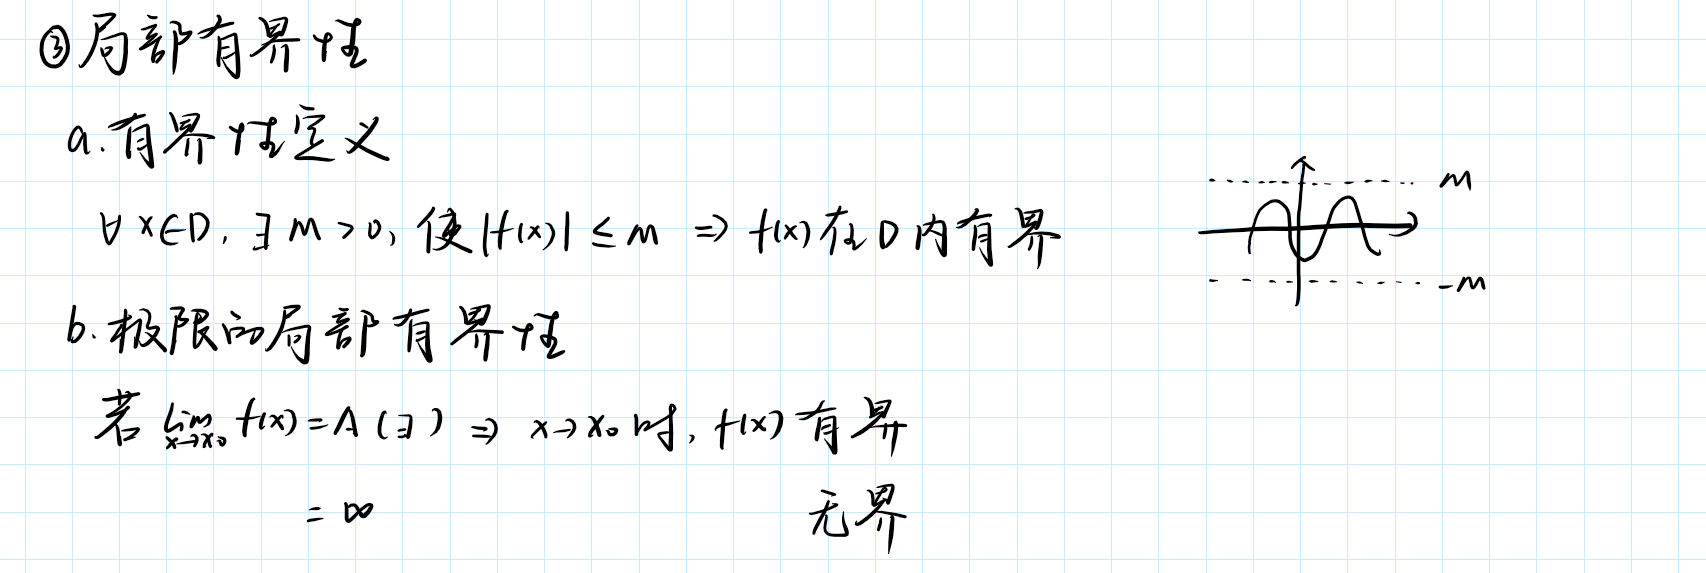 ③局部有界性
a.有界性定义
∀x∈D,∃M>0,使|f(x)|≤M ⇒ f(x)在D内有界
M
-M
b.极限的局部有界性
若 lim x→x₀ f(x)=A(∃) ⇒ x→x₀时,f(x)有界
=∞ 无界